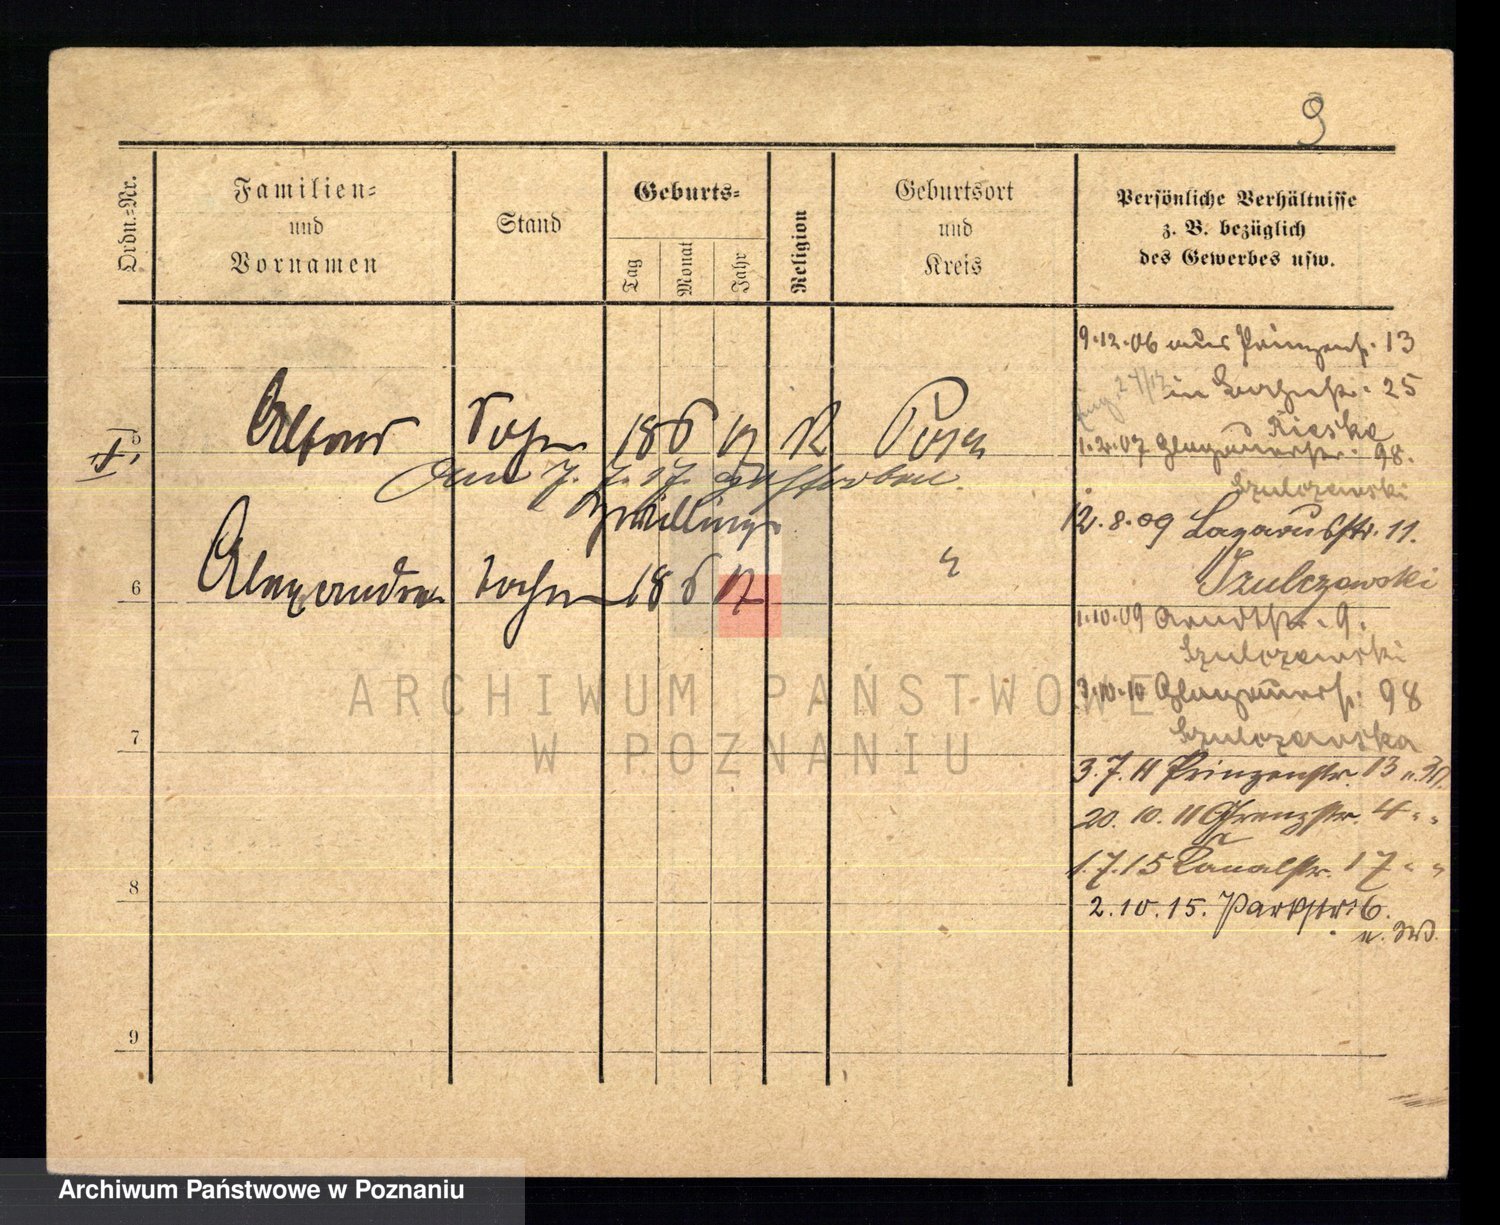 9
Ordn.-Nr.
Familien-
und
Vornamen
Stand
Geburts-
Tag
Monat
Jahr
Religion
Geburtsort
und
Kreis
Persönliche Verhältnisse
z. B. bezüglich
des Gewerbes usw.
9.12.06 aus Prinzenstr. 13
in 25
1.2.07 Glogauerstr. 98.
Szulczewski
12.8.09 Lazarusstr. 11.
Szulczewski
1.10.09 Arndtstr. 9.
Szulczewski
3.10.10 Glogauerstr. 98
Szulczewska
3.7.11 Prinzenstr. 13
20.10.11 Grenzstr. 4 " "
1.7.15 Kanalstr. 17 " "
2.10.15. Parkstr. 6.
5
Sohn 18 6 17 K Posen
am 7. 7. 17. gestorben.
Zwillinge
6
Alexandra Tochter 18 6 17 "
7
8
9
ARCHIWUM PAŃSTWOWE
W POZNANIU
Archiwum Państwowe w Poznaniu